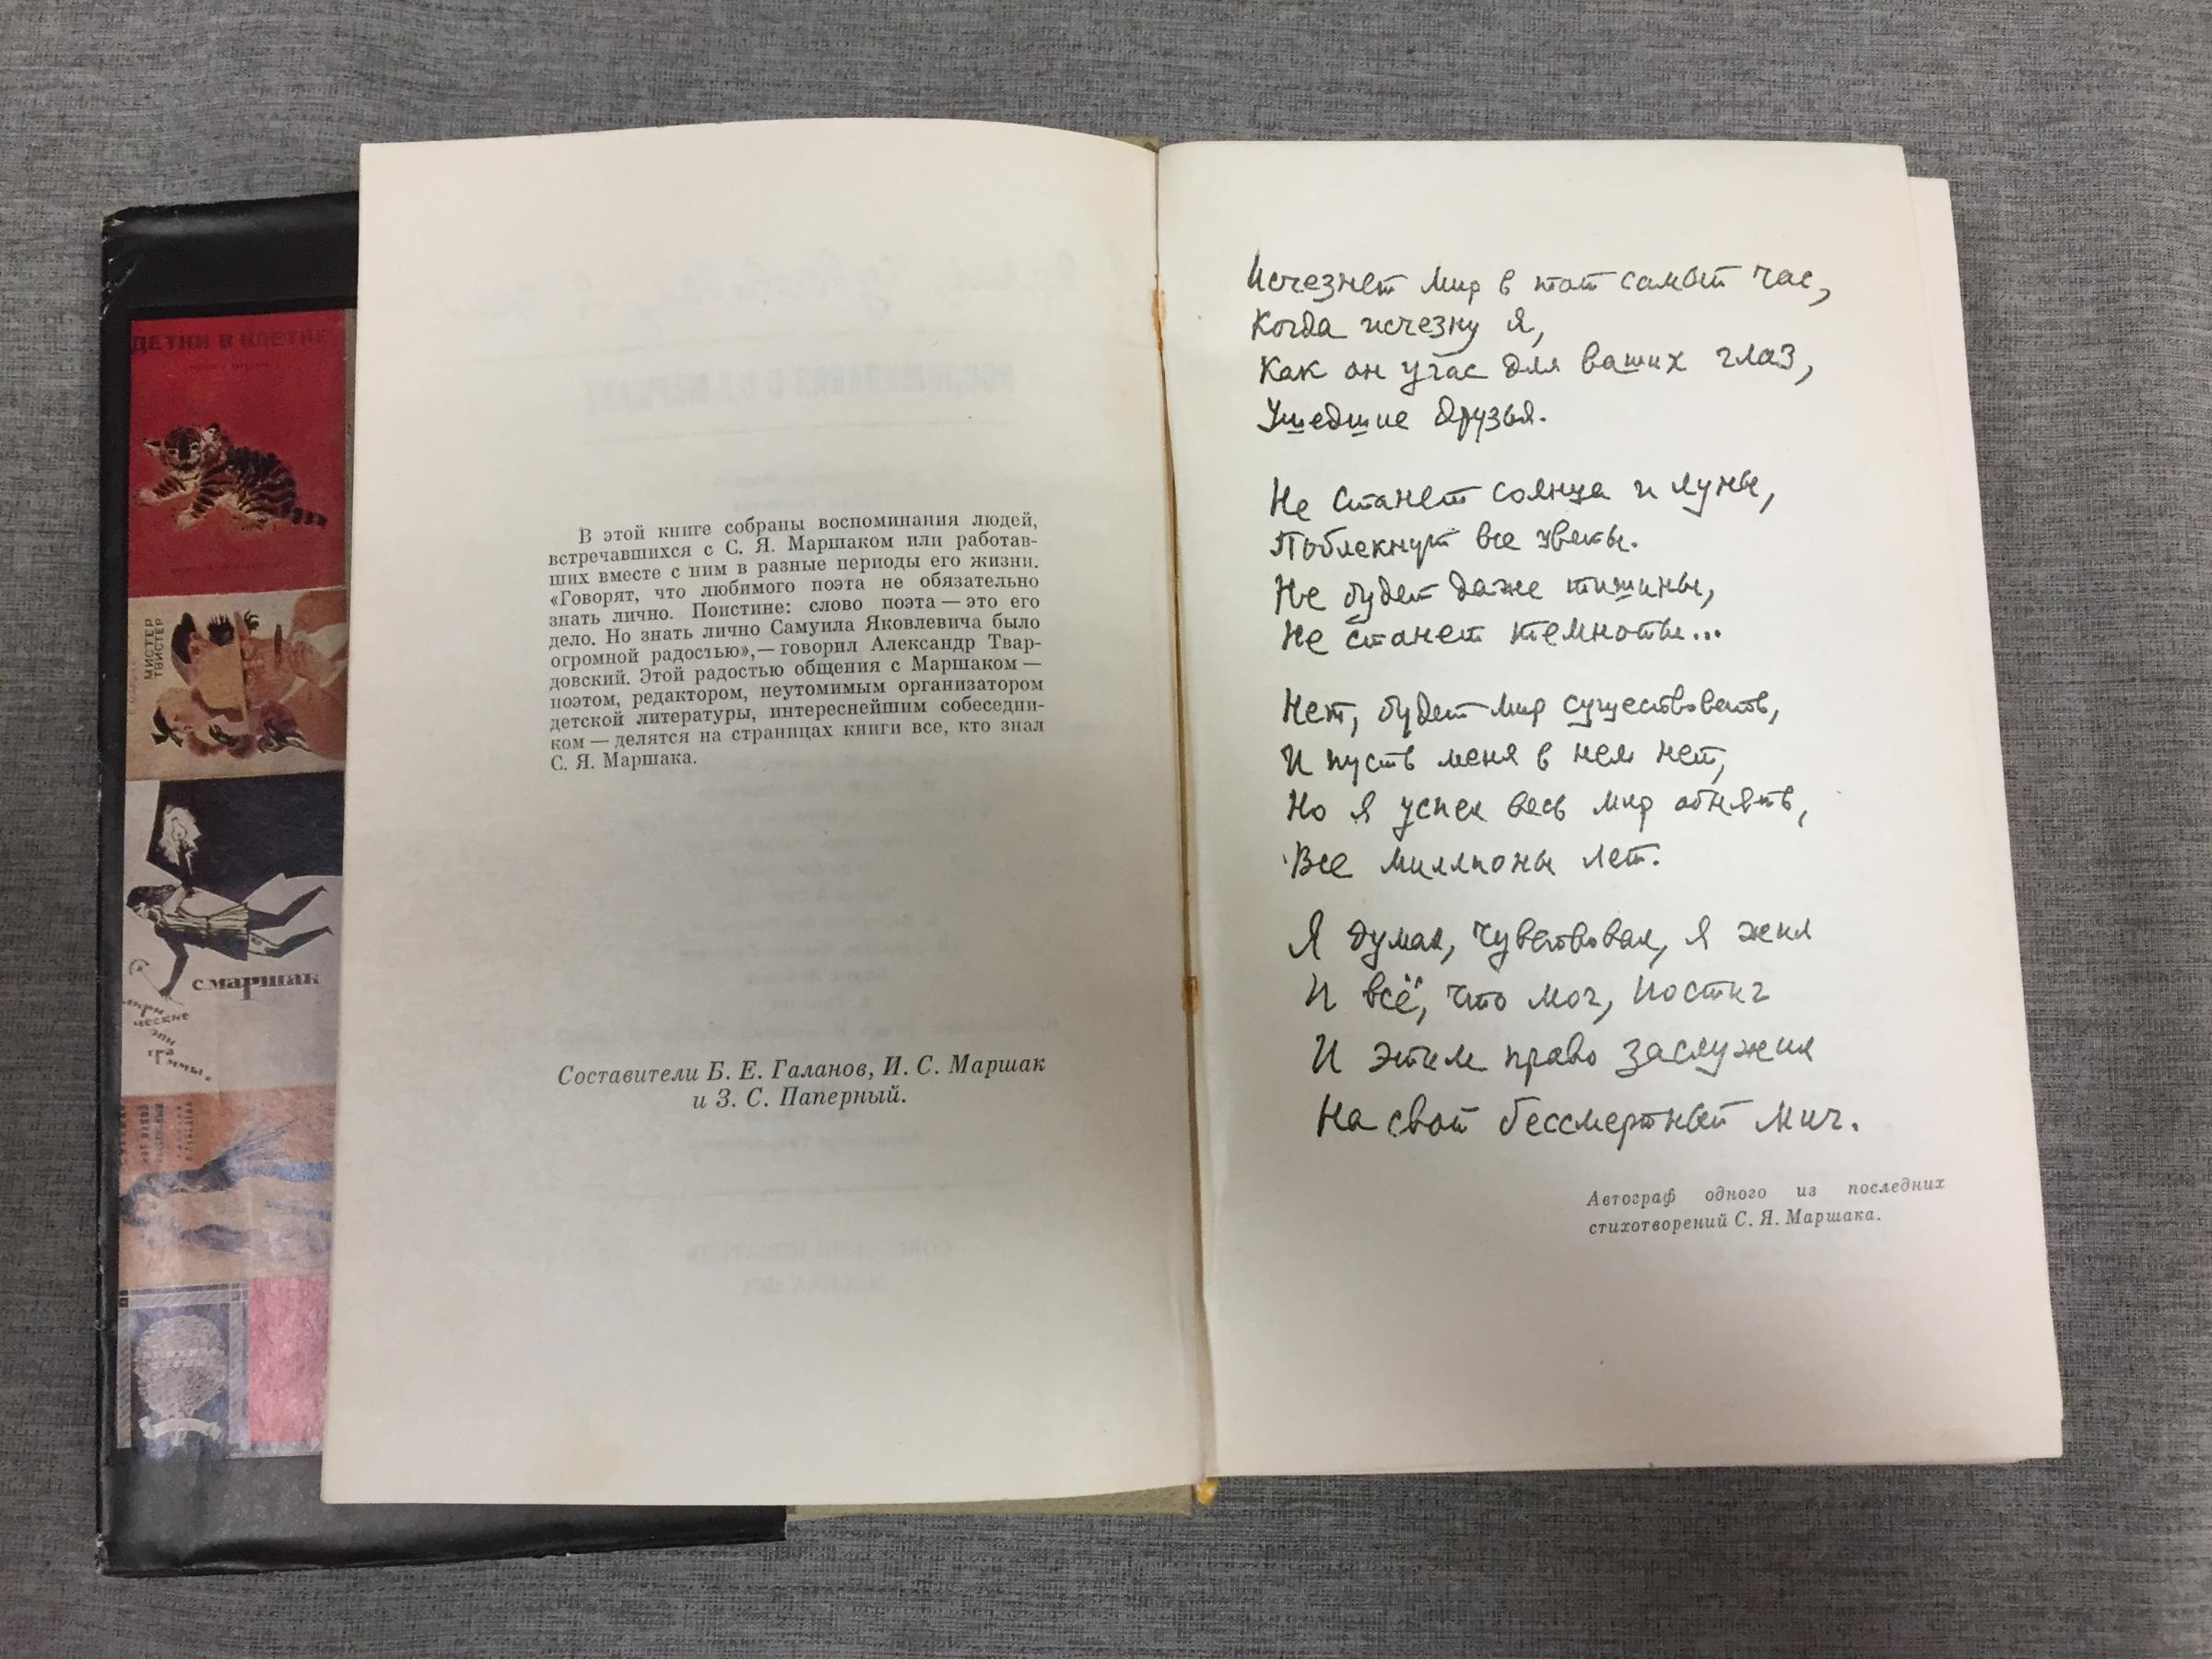 ДЕТКИ В КЛЕТКЕ
МИСТЕР
ТВИСТЕР
С МАРШАК
лири
ческие
эпи
гра
ммы.
В этой книге собраны воспоминания людей,
встречавшихся с С. Я. Маршаком или работав-
ших вместе с ним в разные периоды его жизни.
«Говорят, что любимого поэта не обязательно
знать лично. Поистине: слово поэта — это его
дело. Но знать лично Самуила Яковлевича было
огромной радостью»,— говорил Александр Твар-
довский. Этой радостью общения с Маршаком —
поэтом, редактором, неутомимым организатором
детской литературы, интереснейшим собеседни-
ком — делятся на страницах книги все, кто знал
С. Я. Маршака.
Составители Б. Е. Галанов, И. С. Маршак
и З. С. Паперный.
Исчезнет мир в тот самый час,
Когда исчезну я,
Как он угас для ваших глаз,
Ушедшие друзья.
Не станет солнца и луны,
Поблекнут все цветы.
Не будет даже тишины,
Не станет темноты...
Нет, будет мир существовать,
И пусть меня в нем нет,
Но я успел весь мир обнять,
Все миллионы лет.
Я думал, чувствовал, я жил
И всё, что мог, постиг
И этим право заслужил
На свой бессмертный миг.
Автограф одного из последних
стихотворений С. Я. Маршака.